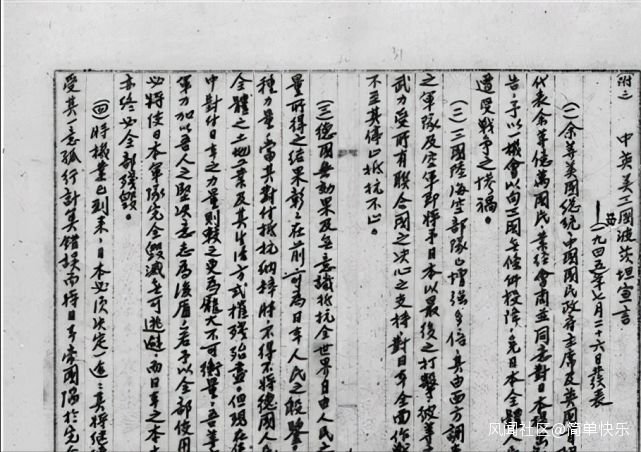 附之 中英美三國波茨坦宣言
一九四五年七月二十六日發表
(一)余等美國總統中國國民政府主席及英國
代表余等億萬國民業經會商並同意對日本
告予以機會以向三國無條件投降免日本全體
遭受戰爭之慘禍。
(二)三國陸海空部隊已增強多倍其由西方調
之軍隊及空軍即將予日本以最後之打擊彼等之
武力受所有聯合國之決心之支持對日本全面作戰
不至其停止抵抗不止。
(三)德國無効果及無意識抵抗全世界自由人民之
量所得之結果彰彰在前可為日本人民之殷鑒
種力量當其對付抵抗納粹時不得不將德國人民
全體之土地工業及其生活方式摧殘殆盡但現在集
中對付日本之力量則較之更為龐大不可衡量吾等
軍力加以吾人之堅決意志為後盾若予以全部使用
必將使日本軍隊完全毀滅無可逃避而日本之本土
亦終必全部殘毀。
(四)時機業已到來日本必須決定一途其將繼續
受其意孤行計算錯誤而將日本帝國陷於完全
风闻社区@简单快乐